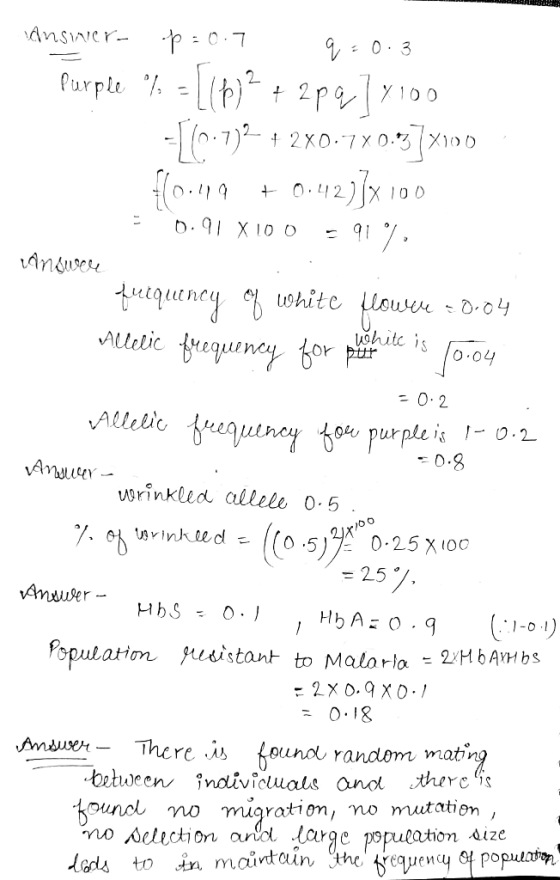 Answer- p = 0.7 q = 0.3
Purple % = [(p)² + 2pq] × 100
= [(0.7)² + 2×0.7×0.3] ×100
{(0.49 + 0.42)]× 100
= 0.91 × 100 = 91 %.
Answer
frequency of white flower = 0.04
Allelic frequency for white is √0.04
= 0.2
Allelic frequency for purple is 1- 0.2
= 0.8
Answer-
wrinkled allele 0.5.
% of wrinkled = ((0.5)²)×100 = 0.25 × 100
= 25 %.
Answer-
HbS = 0.1 , HbA = 0.9 (∵1-0.1)
Population resistant to Malaria = 2×HbA×Hbs
= 2 × 0.9 × 0.1
= 0.18
Answer- There is found random mating
between individuals and there is
found no migration, no mutation,
no selection and large population size
leds to in maintain the frequency of population